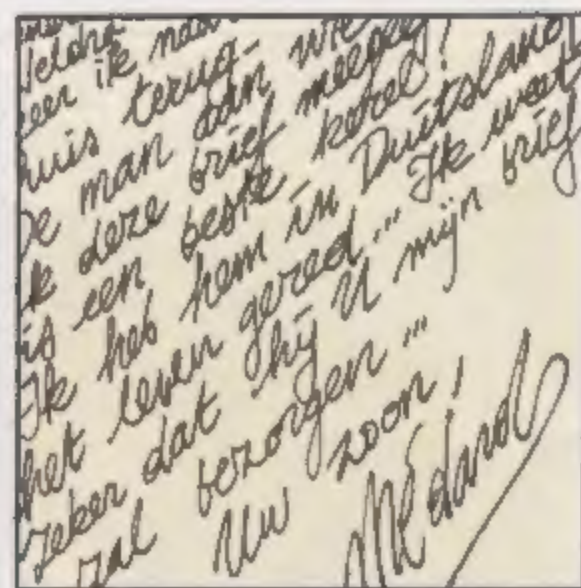 keer ik naar
huis terug.
De man aan wie
ik deze brief meegeef
is een beste kerel!
Ik heb hem in Duitsland
het leven gered... Ik weet
zeker dat hij U mijn brief
zal bezorgen...
Uw zoon,
Médard